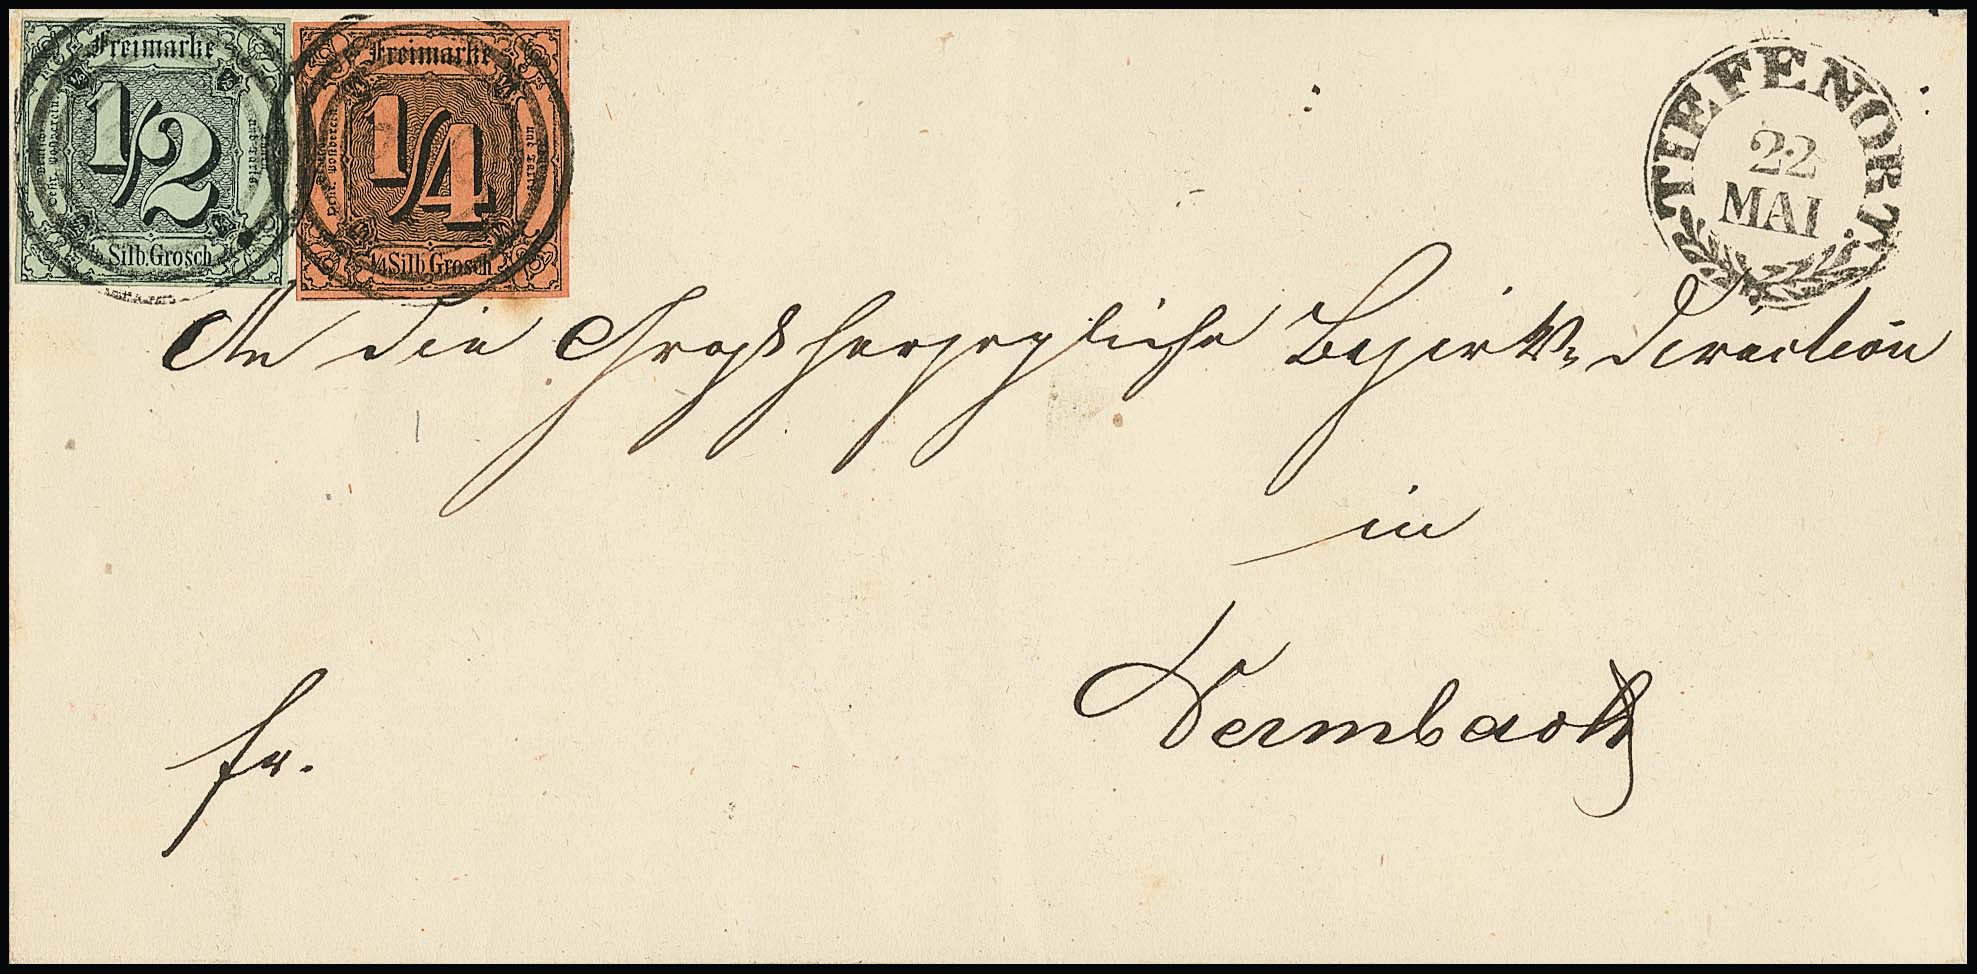 Freimarke
1/2
Silb. Grosch
Freimarke
1/4
1/4 Silb Grosch
TIEFENORT.
22
MAI
An die Großherzogliche Bezirks Direction
in
Dermbach
fr.